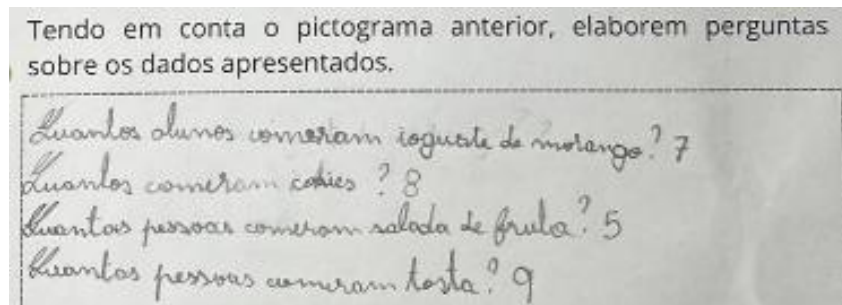 Tendo em conta o pictograma anterior, elaborem perguntas
sobre os dados apresentados.
Quantos alunos comeram iogurte de morango? 7
Quantos comeram cokies? 8
Quantas pessoas comeram salada de fruta? 5
Quantas pessoas comeram tosta? 9